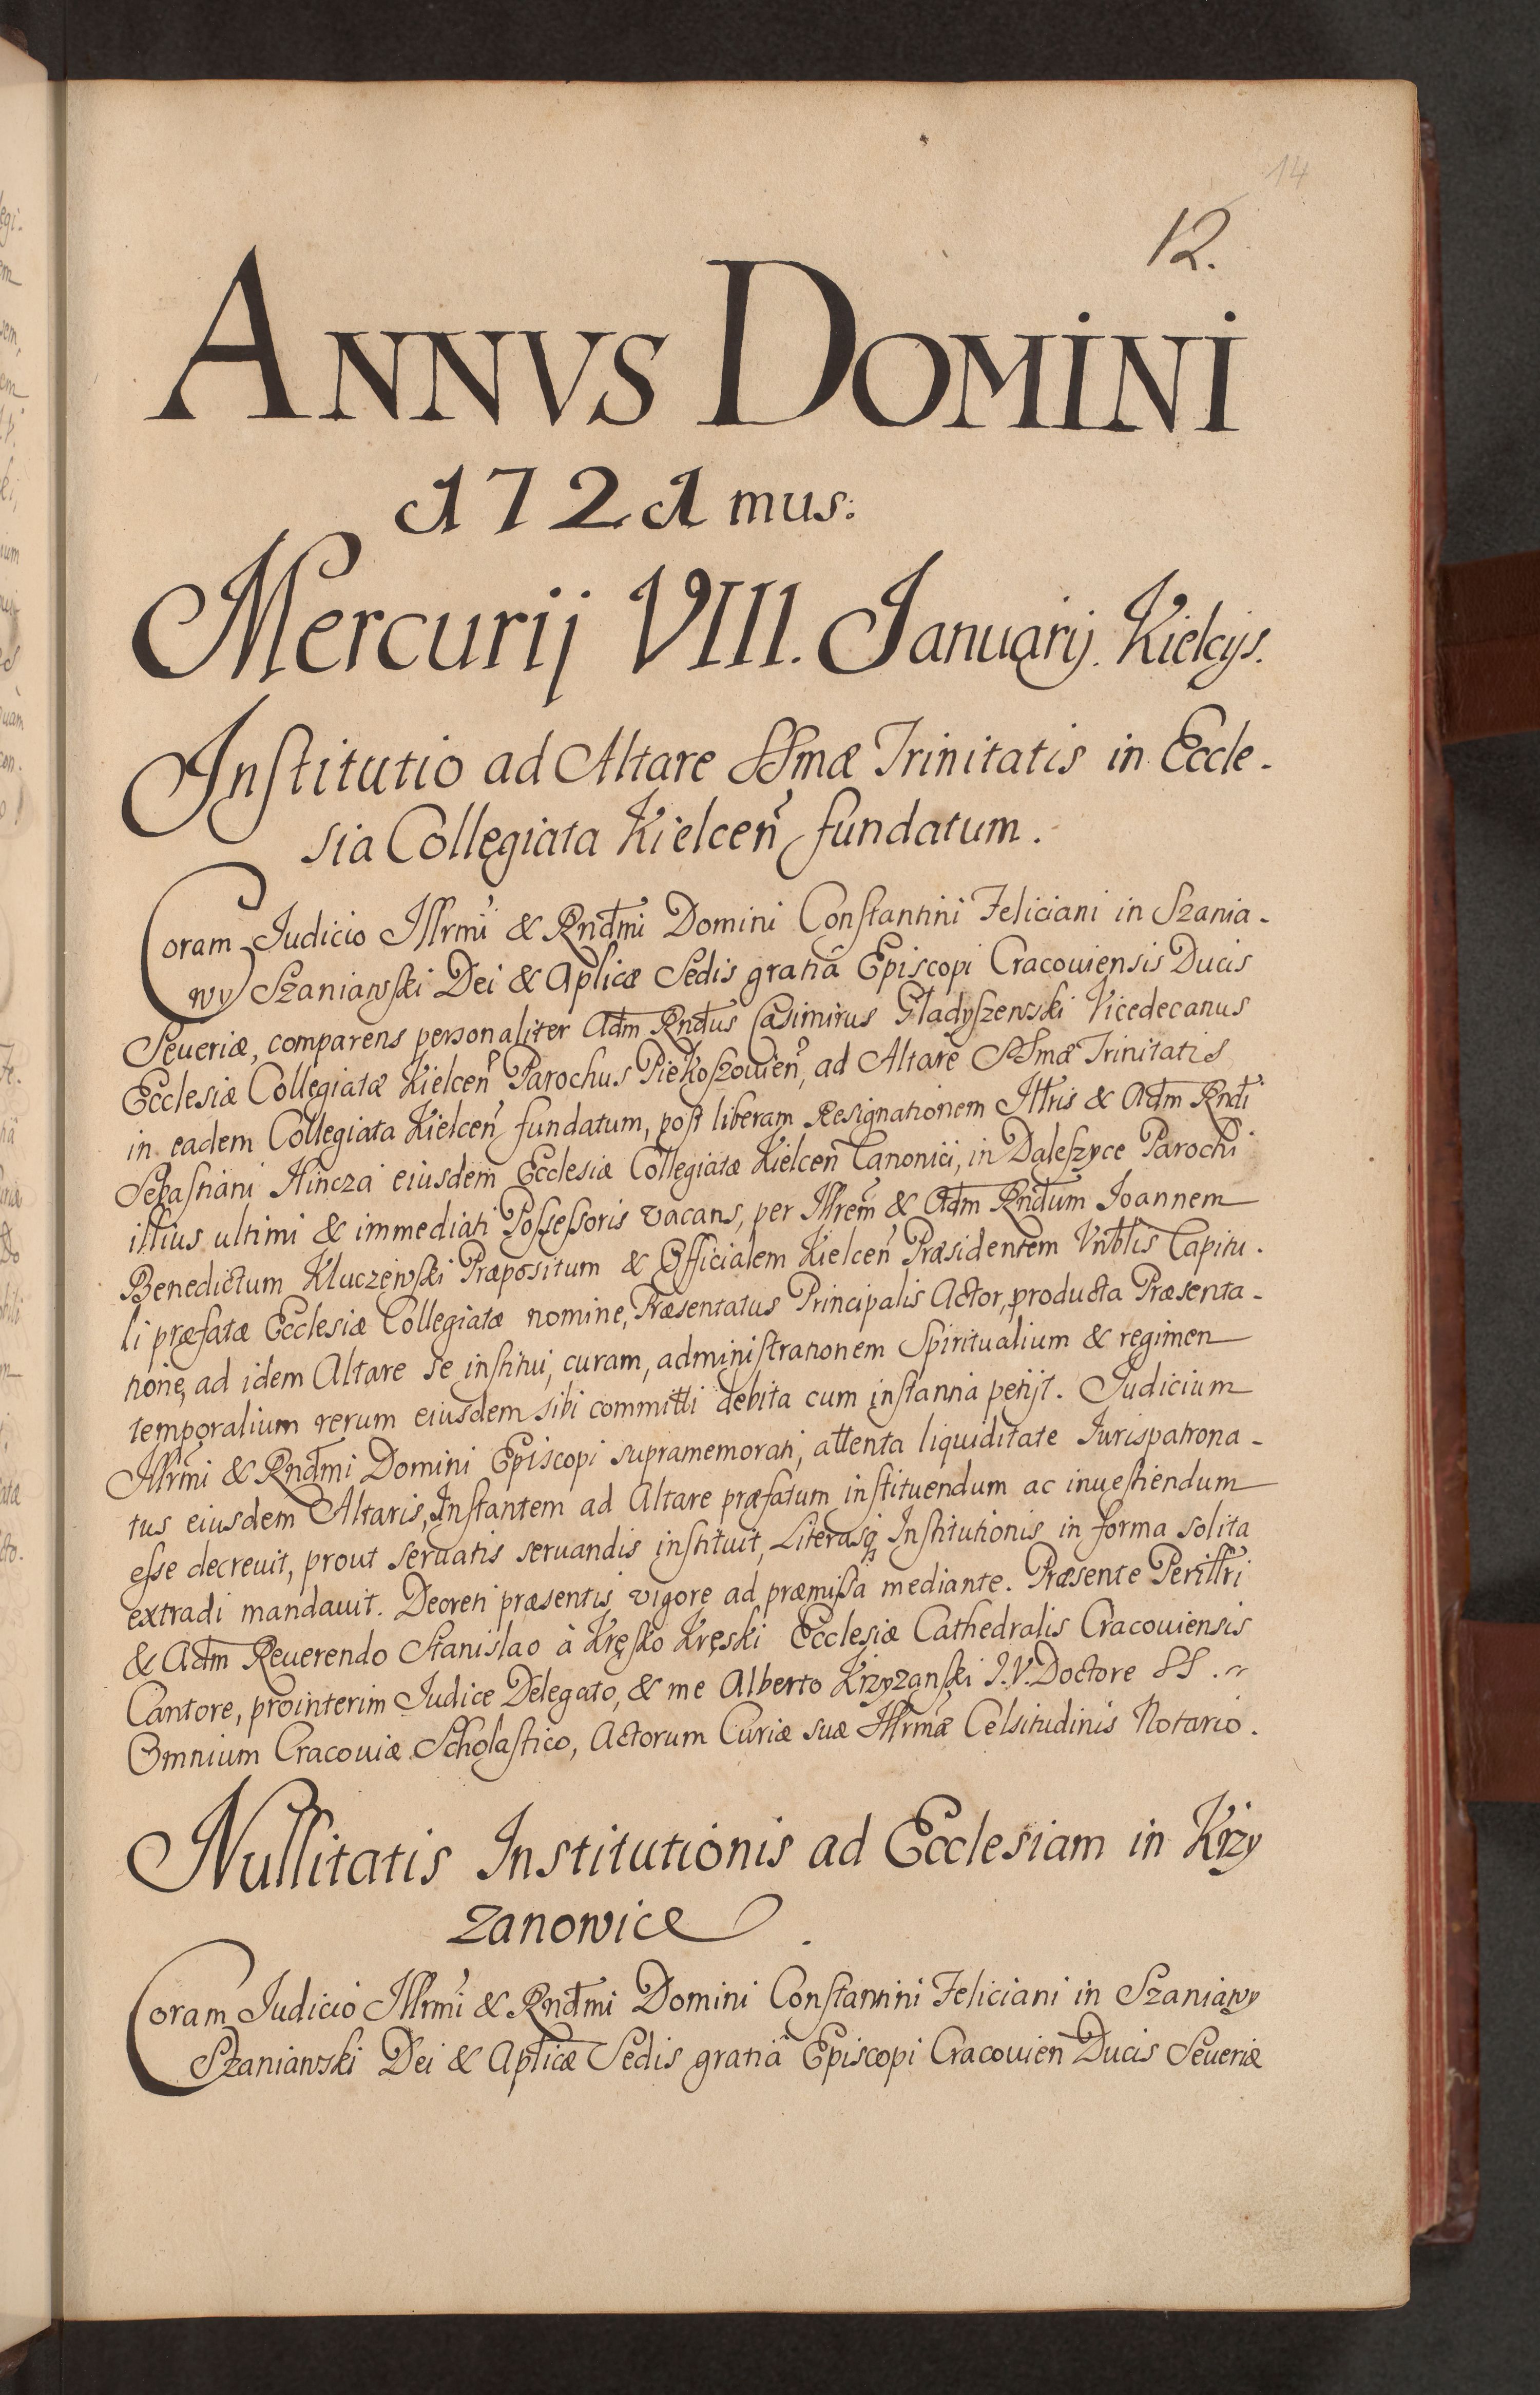 14
12.
ANNVS DOMINI
1721mus:
Mercurij VIII. Januarij. Kielcijs.
Institutio ad Altare SSmæ Trinitatis in Eccle-
sia Collegiata Kielcen̄ fundatum.
Coram Judicio Illrmi & Rndmi Domini Constantini Feliciani in Szania-
wy Szaniawski Dei & Aplicæ Sedis gratiâ Episcopi Cracouiensis Ducis
Seueriæ, comparens personaliter Adm Rndus Casimirus Gładyszewski Vicedecanus
Ecclesiæ Collegiatæ Kielcen̄ Parochus Piekoszouien̄, ad Altare SSmæ Trinitatis
in eadem Collegiata Kielcen̄ fundatum, post liberam Resignationem Illris & Adm Rndi
Sebastiani Hincza eiusdem Ecclesiæ Collegiatæ Kielcen̄ Canonici, in Daleszyce Parochi
illius ultimi & immediati Possessoris vacans, per Illrem & Adm Rndum Ioannem
Benedictum Kluczewski Præpositum & Officialem Kielcen̄ Præsidentem Vnblis Capitu-
li præfatæ Ecclesiæ Collegiatæ nomine, Præsentatus Principalis Actor, producta Præsenta-
tione, ad idem Altare se institui, curam, administrationem Spiritualium & regimen
temporalium rerum eiusdem sibi committi debita cum instantia petijt. Judicium
Illrmi & Rndmi Domini Episcopi supramemorati, attenta liquiditate Iurispatrona-
tus eiusdem Altaris, Instantem ad Altare præfatum instituendum ac inuestiendum
esse decreuit, prout seruatis seruandis instituit, Literasq; Institutionis in forma solita
extradi mandauit. Decreti præsentis vigore ad præmissa mediante. Præsente Perillri
& Adm Reuerendo Stanislao à Kręsko Kręski Ecclesiæ Cathedralis Cracouiensis
Cantore, prointerim Judice Delegato, & me Alberto Krzyzanski I.V. Doctore SS.
Omnium Cracouiæ Scholastico, Actorum Curiæ suæ Illrmæ Celsitudinis Notario.
Nullitatis Institutionis ad Ecclesiam in Krzy
zanowice.
Coram Judicio Illrmi & Rndmi Domini Constantini Feliciani in Szaniawy
Szaniawski Dei & Aplicæ Sedis gratiâ Episcopi Cracouien̄ Ducis Seueriæ